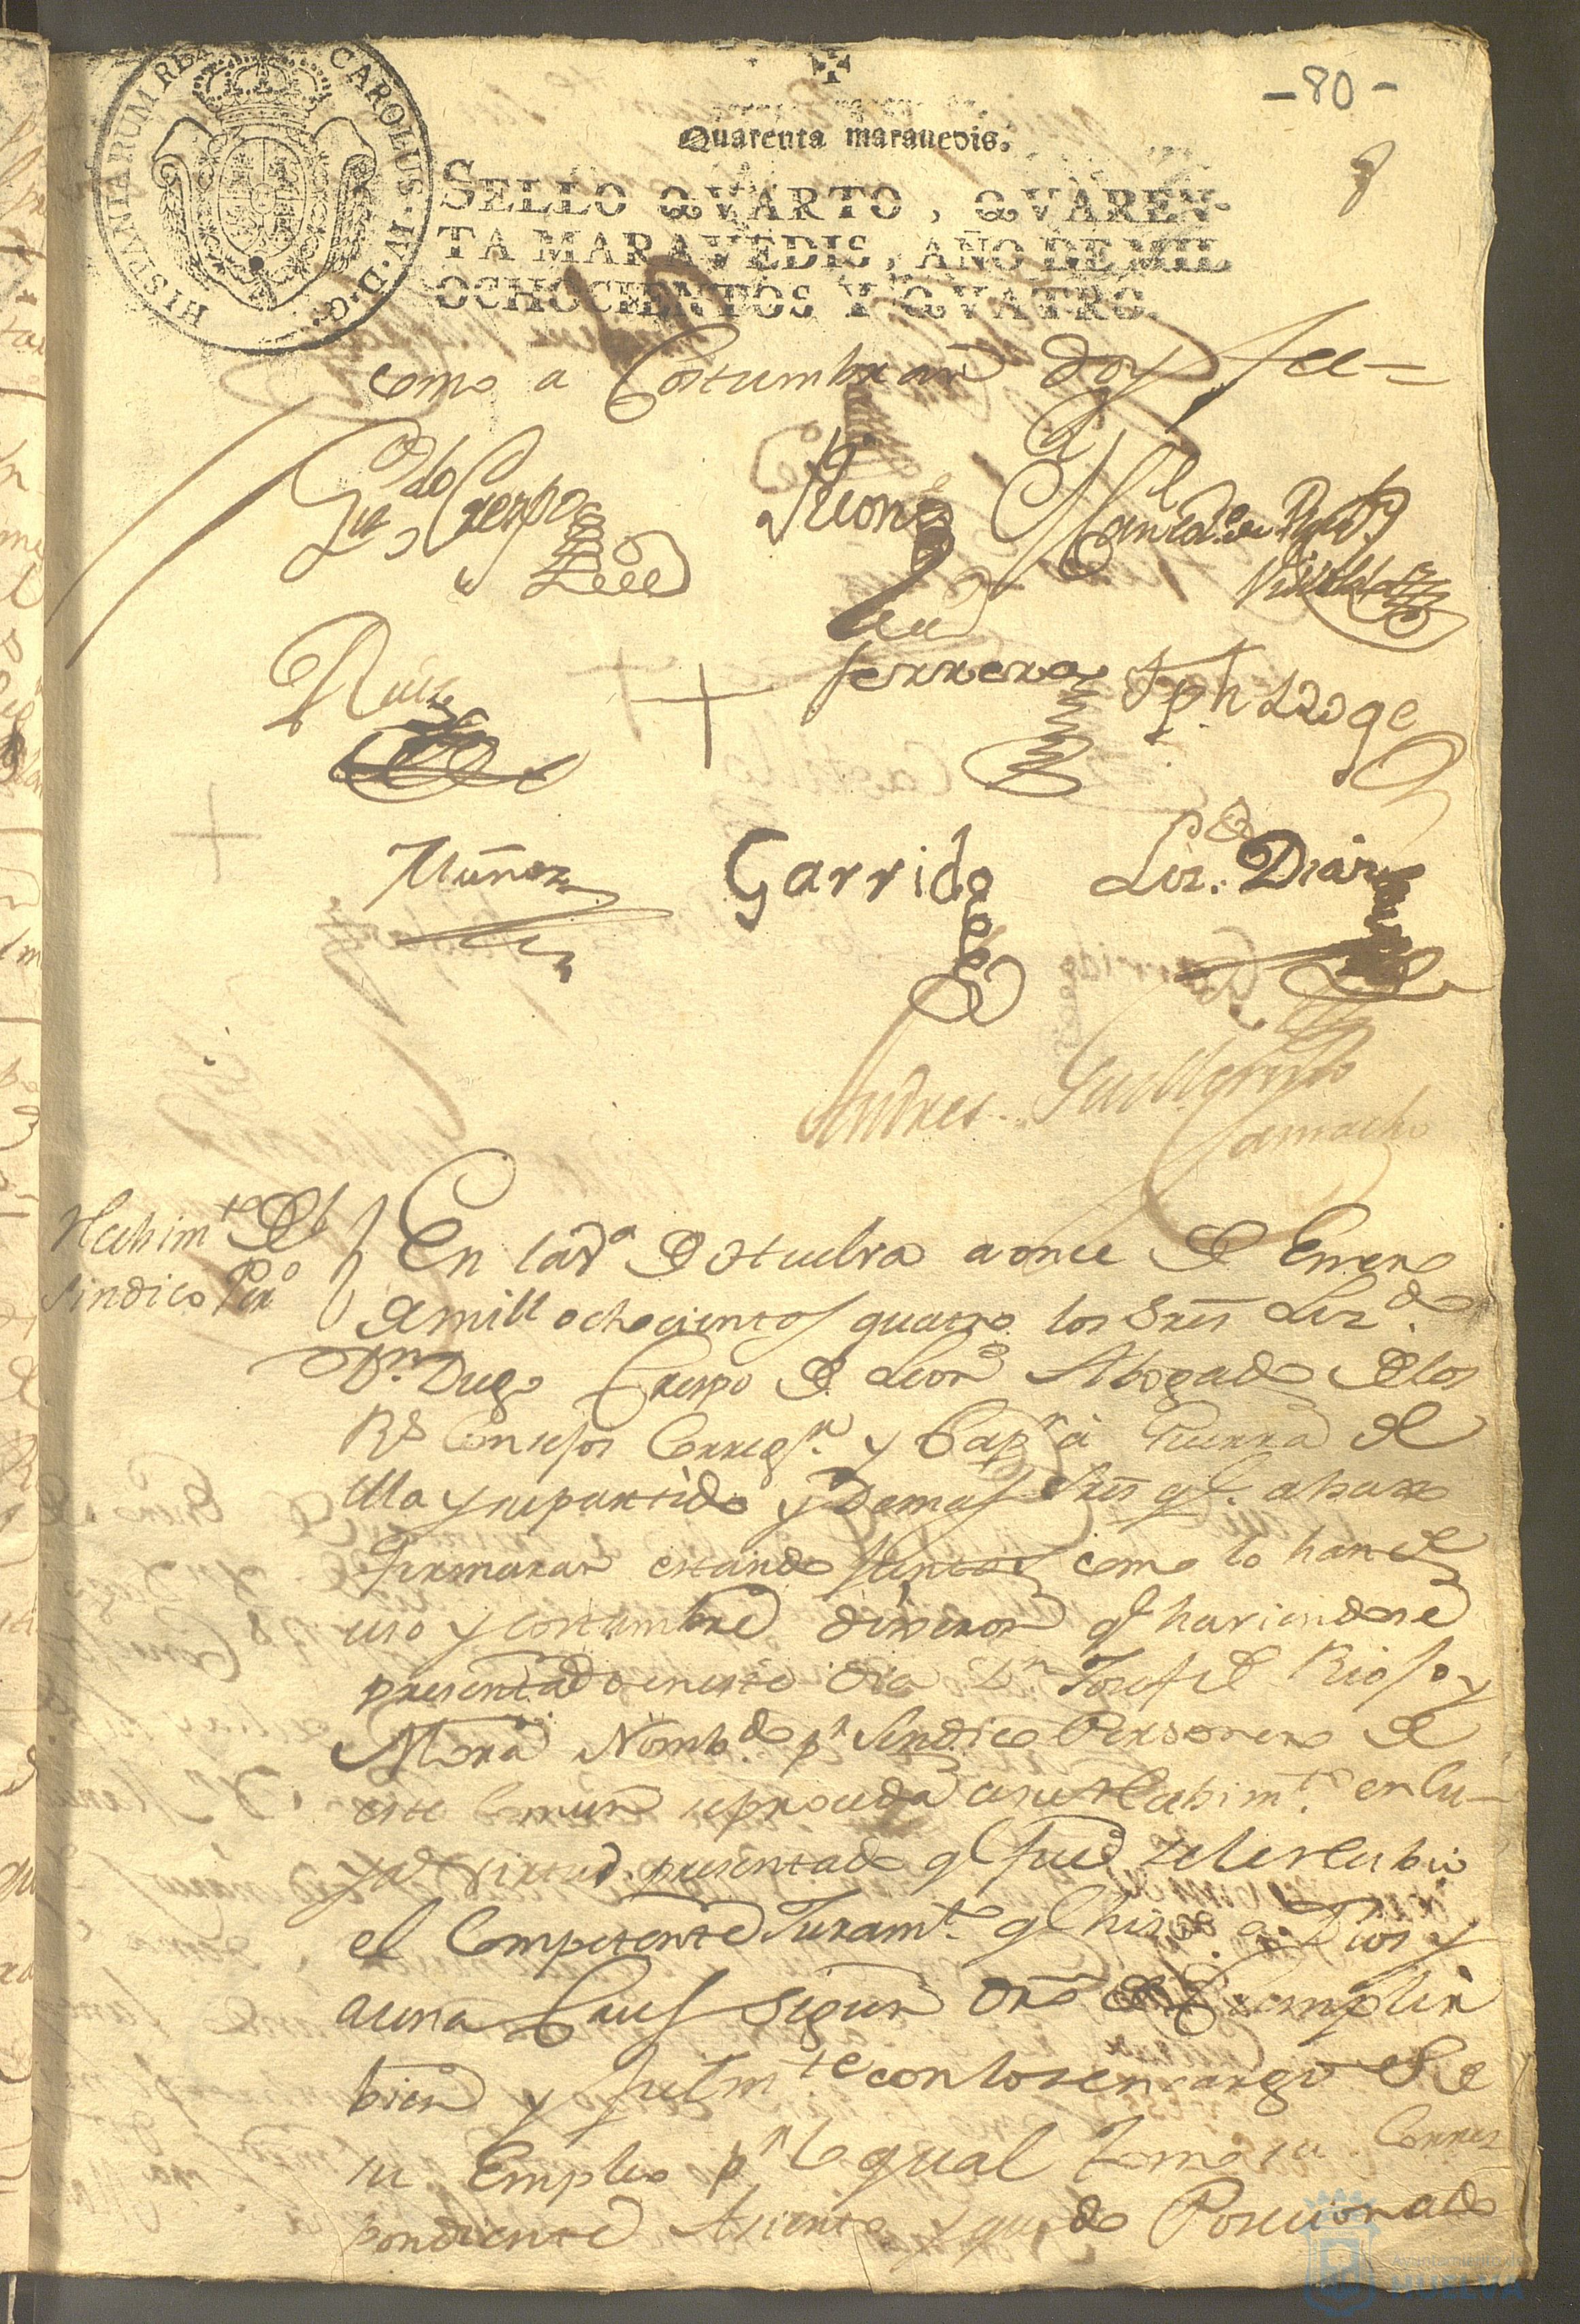 - 80 -
HISPANIARUM REX CAROLUS IV D.G.
Quarenta maravedis.
SELLO QVARTO, QVAREN-
TA MARAVEDIS, AÑO DE MIL
OCHOCIENTOS Y QVATRO.
como a Costumbran doy fee=
Lizdo Crespo
Leon
Ruiz
ferrera
Jph
Muñoz
Garrido
Lizdo Diaz
Andres Guillermo
Camacho
Recibimto del
Sindico Perº
En la Va de Huelva a once de Enero
de mill ochocientos quatro los Sres Lizdo
Dn Diego Crespo de Leon Abogado de los
Rs Consejos Corregr y Capn à Guerra de
ella y su partido y Demas Sres qe abaxo
firmaran estando Juntos como lo han de
uso y costumbre dixeron qe haviendose
presentado en este dia Dn Josef de Rioja y
Mora Nombdo pr Sindico Personero de
este Comun se proceda a su Recibimto en cu-
ya Virtud presentado qe fue se le recibio
el Competente Juramto qe hizo a Dios y
a una Cruz segun dro de cumplir
bien y fielmte con los encargos de
su Empleo pr lo qual tomo su Corres
pondiente Asiento y quedo Posecionado
Ayuntamiento de
HUELVA